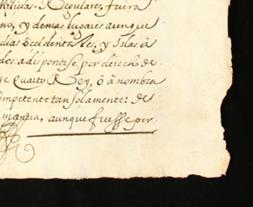 Seculares fuera
no, y demas lugares aunque
dias Occidentales, y Islas à
des a disponerse por derecho de
Quarto Rey, ò à nombre
competente tan solamente: de
manera, aunque fuesse por